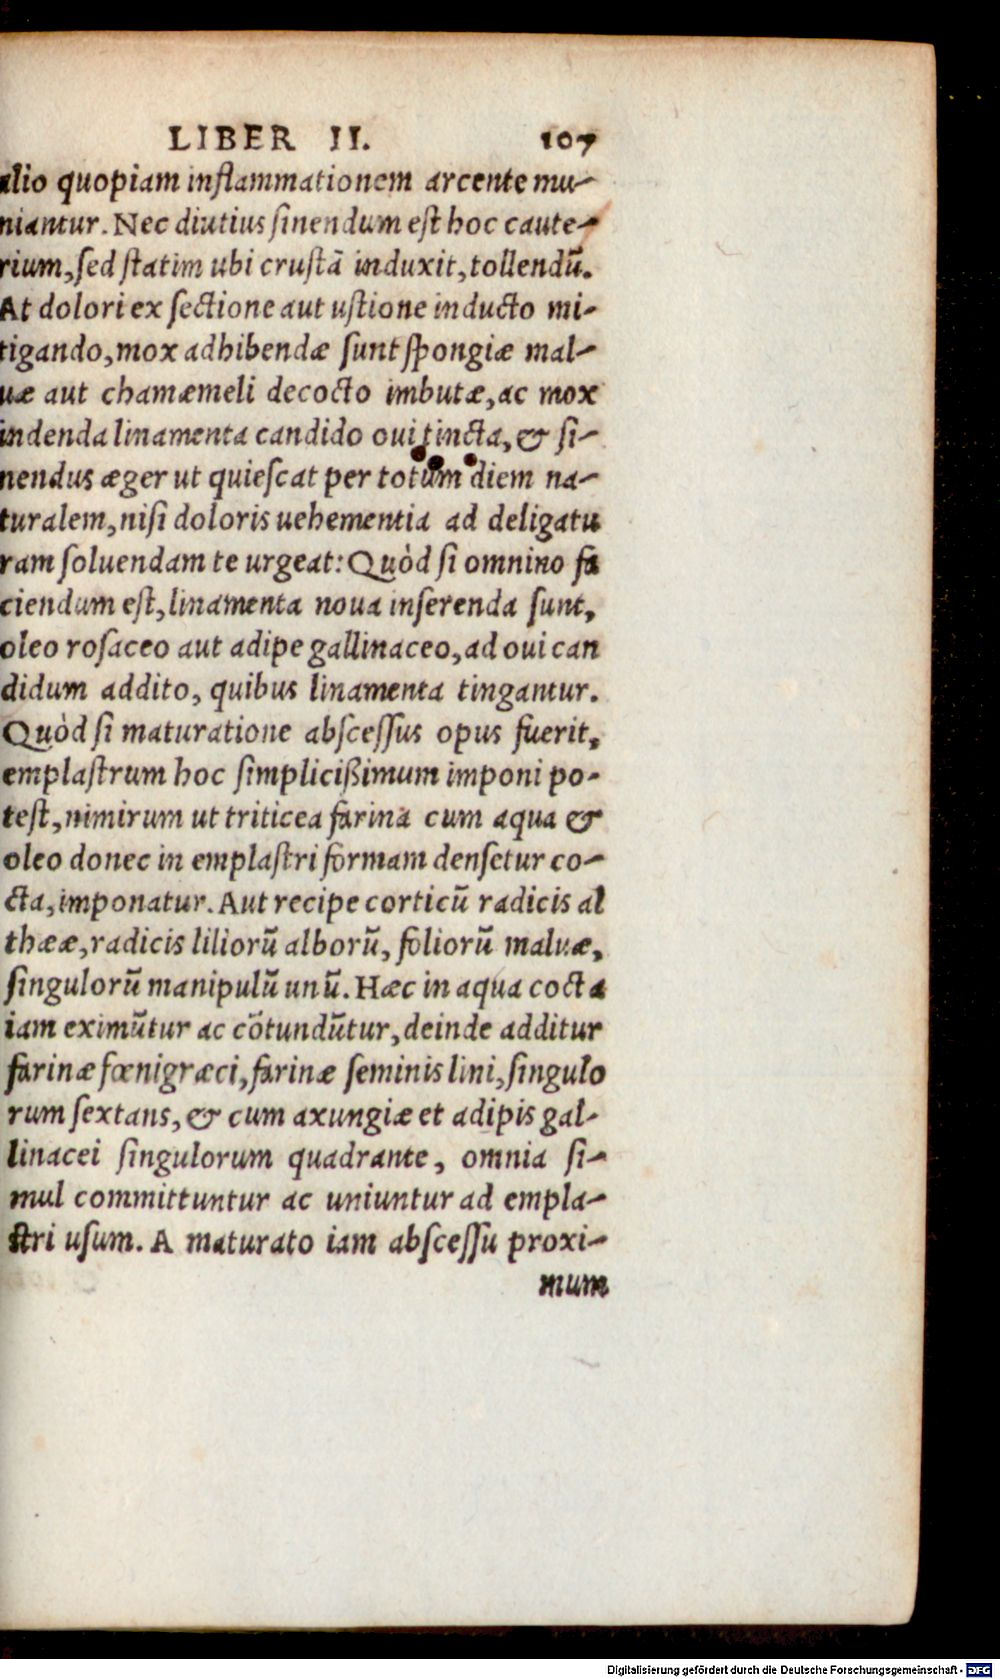 LIBER II. 107
alio quopiam inflammationem arcente mu-
niantur. Nec diutius ſinendum eſt hoc caute-
rium, ſed ſtatim ubi cruſtã induxit, tollendũ.
At dolori ex ſectione aut uſtione inducto mi-
tigando, mox adhibendæ ſunt ſpongiæ mal-
uæ aut chamæmeli decocto imbutæ, ac mox
indenda linamenta candido oui tincta, & ſi-
nendus æger ut quieſcat per totum diem na-
turalem, niſi doloris uehementia ad deligatu
ram ſoluendam te urgeat: Quòd ſi omnino fa
ciendum eſt, linamenta noua inſerenda ſunt,
oleo roſaceo aut adipe gallinaceo, ad oui can
didum addito, quibus linamenta tingantur.
Quòd ſi maturatione abſceſſus opus fuerit,
emplaſtrum hoc ſimplicißimum imponi po-
teſt, nimirum ut triticea farina cum aqua &
oleo donec in emplaſtri formam denſetur co-
cta, imponatur. Aut recipe corticũ radicis al
thææ, radicis liliorũ alborũ, foliorũ maluæ,
ſingulorũ manipulũ unũ. Hæc in aqua cocta
iam eximũtur ac cõtundũtur, deinde additur
farinæ fœnigræci, farinæ ſeminis lini, ſingulo
rum ſextans, & cum axungiæ et adipis gal-
linacei ſingulorum quadrante, omnia ſi-
mul committuntur ac uniuntur ad empla-
ſtri uſum. A maturato iam abſceſſu proxi-
mum
Digitalisierung gefördert durch die Deutsche Forschungsgemeinschaft - DFG